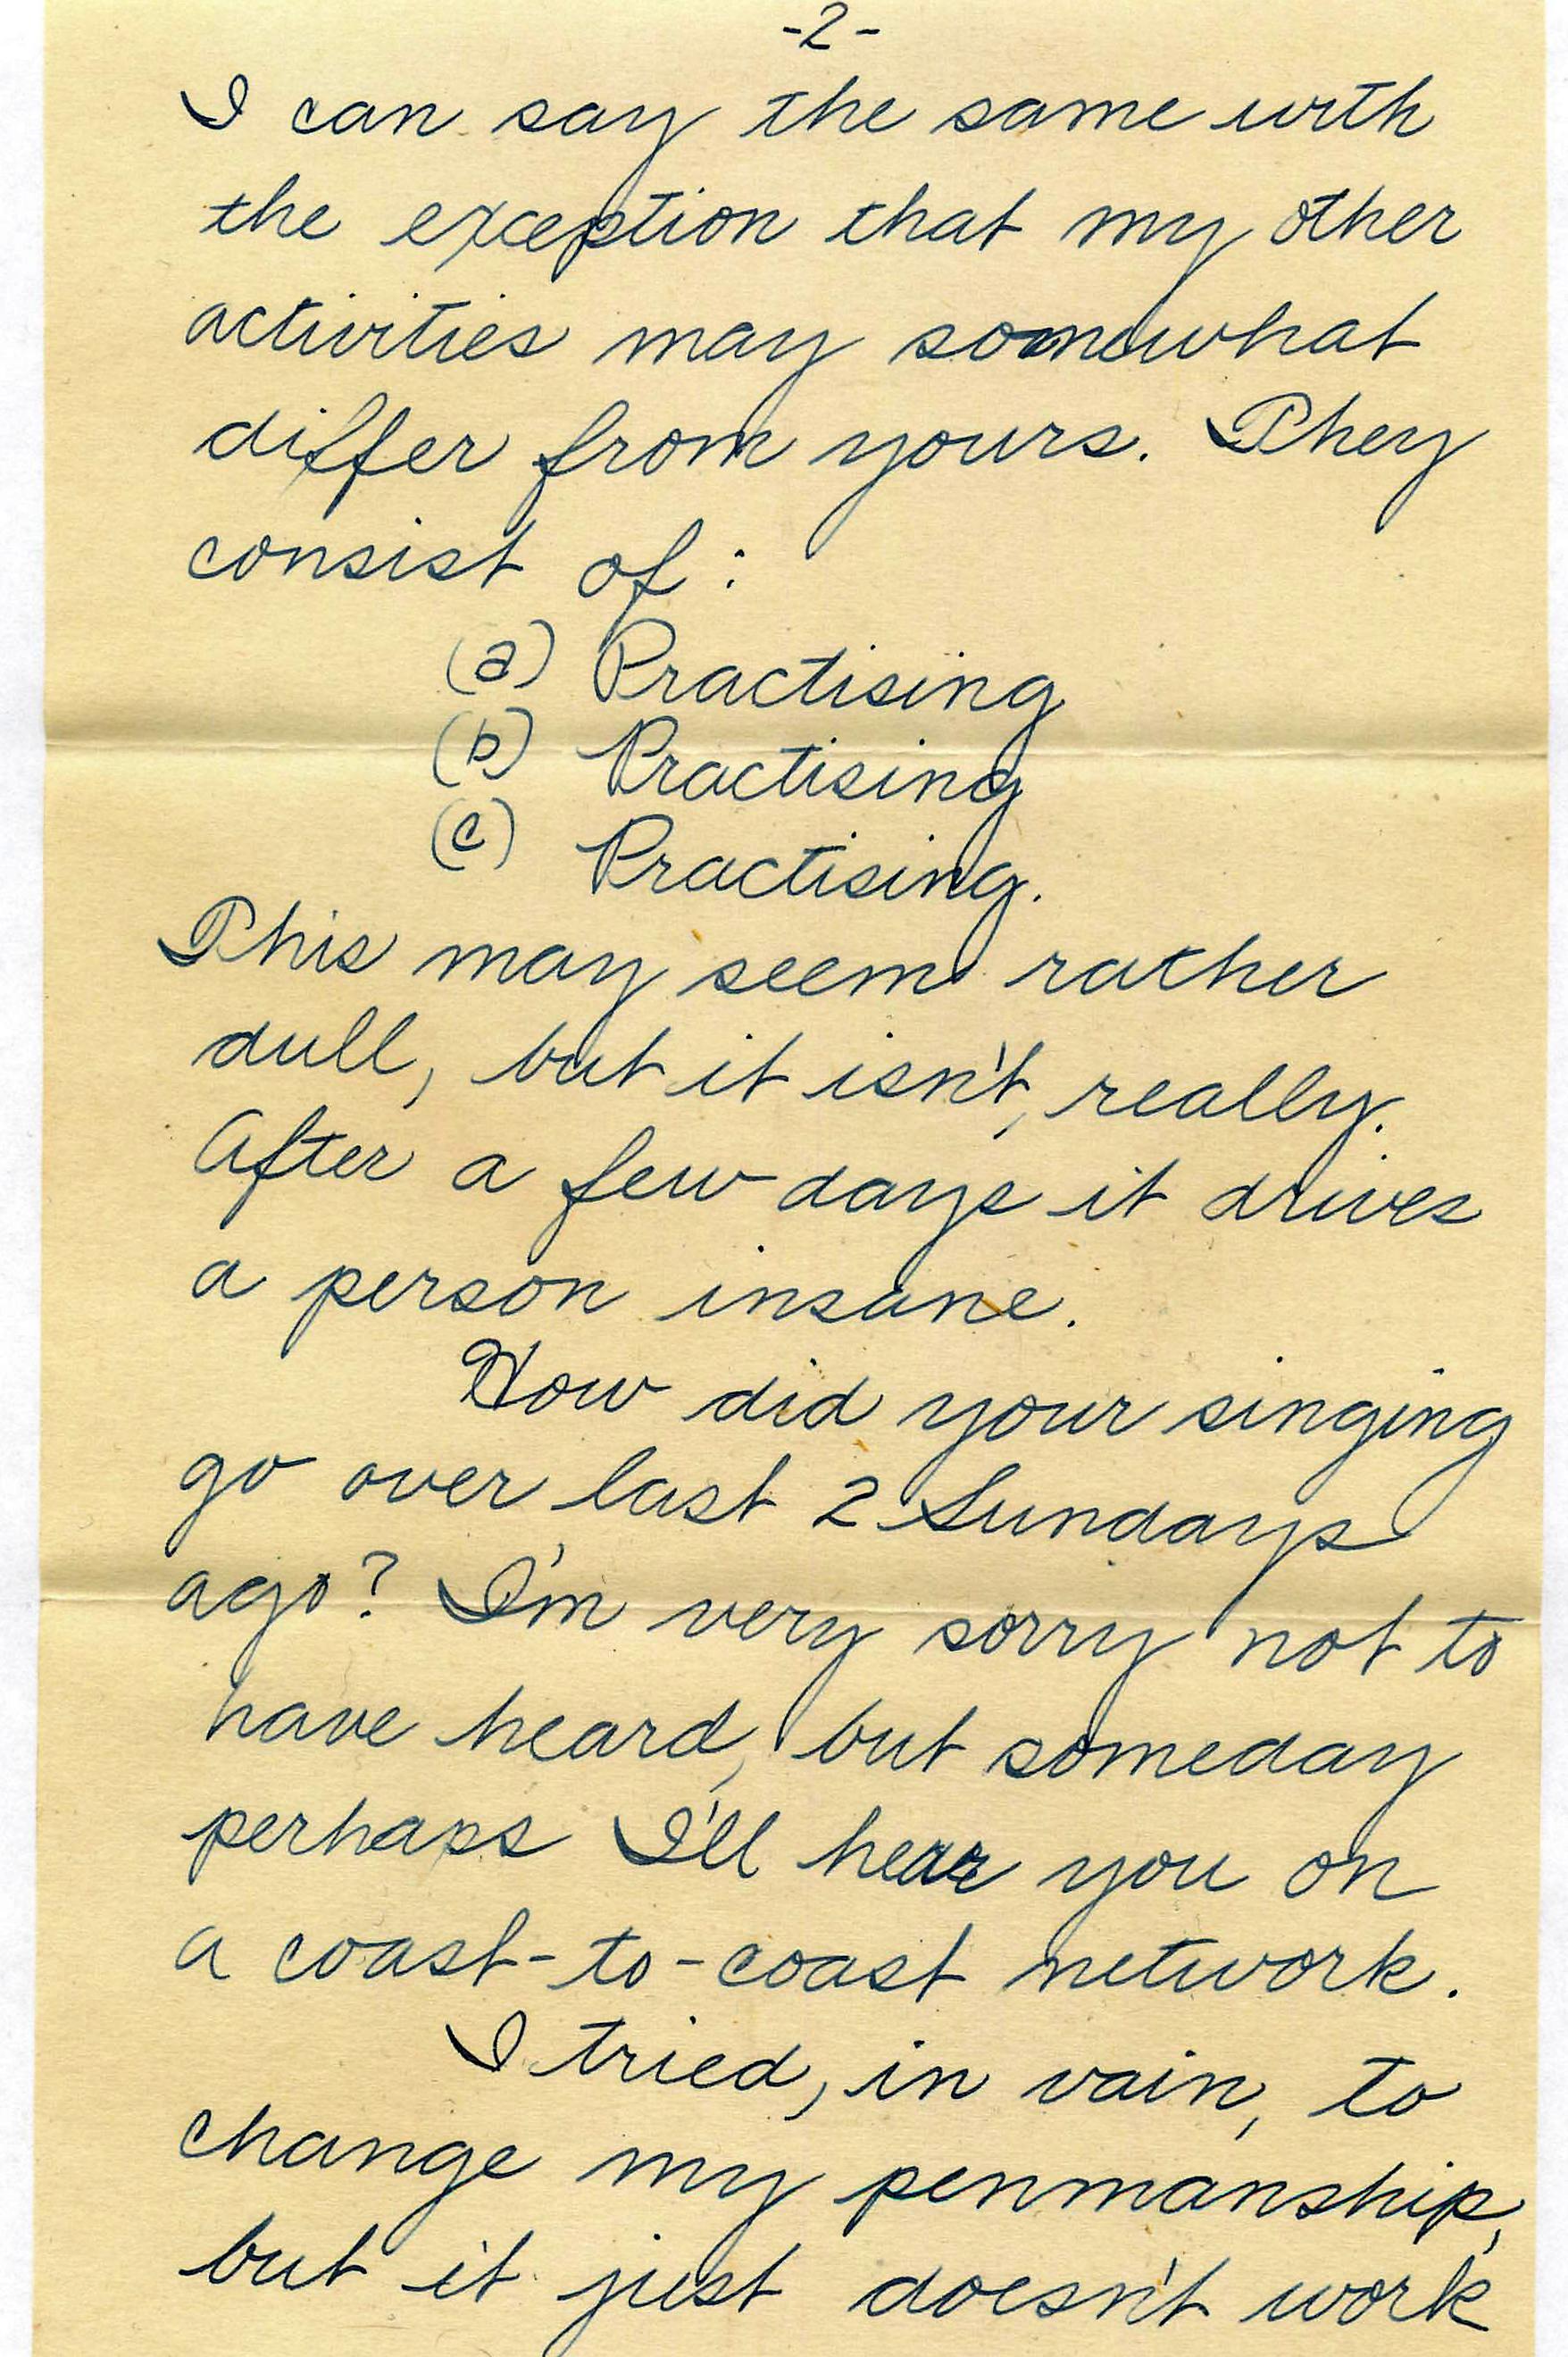 -2-
I can say the same with
the exception that my other
activities may somewhat
differ from yours. They
consist of:
(a) Practising
(b) Practising
(c) Practising.
This may seem rather
dull, but it isn't, really.
After a few days it drives
a person insane.
How did your singing
go over last 2 Sundays
ago? I'm very sorry not to
have heard, but someday
perhaps I'll hear you on
a coast-to-coast network.
I tried, in vain, to
change my penmanship,
but it just doesn't work